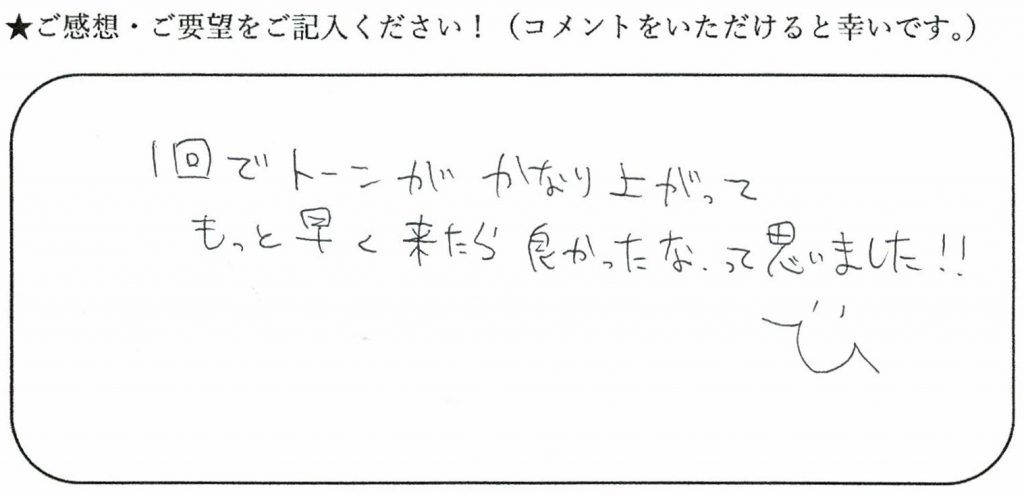 ★ご感想・ご要望をご記入ください！（コメントをいただけると幸いです。）
1回でトーンがかなり上がって
もっと早く来たら良かったな、って思いました!!